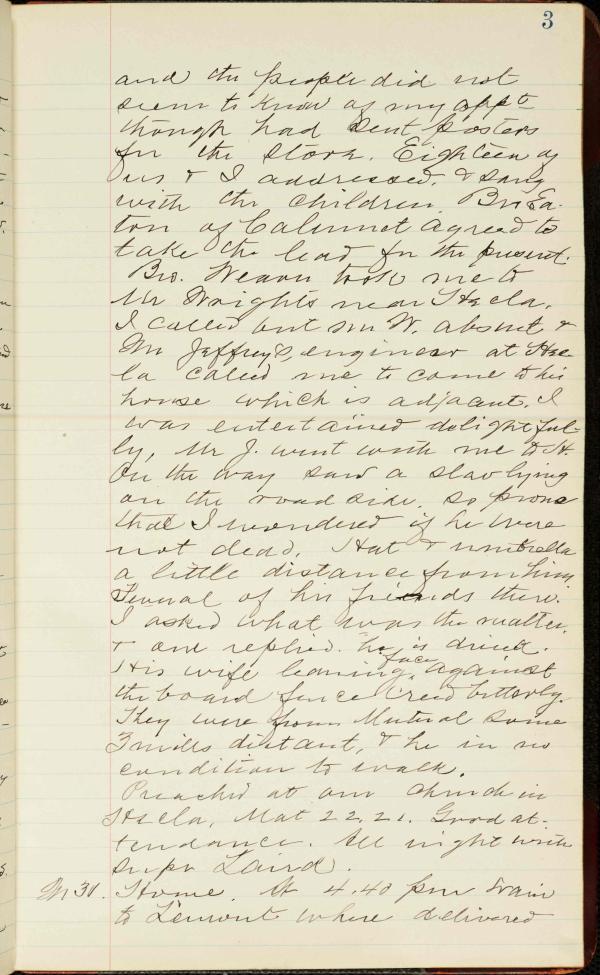 3
and the people did not
seem to know of my appt
though had sent posters
for the store. Eighteen of
us & I addressed. & sang
with the children. Bro Ea-
ton of Calumet agreed to
take the lead for the present.
Bro. Weavr took me to
Mr Wright's near Hecla.
I called but Mr W. absent &
Mr Jeffreys, engineer at Hec-
la called me to come to his
house which is adjacent. I
was entertained delightful-
ly, Mr J. went with me to H.
On the way saw a slav lying
on the road side, so prone
that I wondered if he were
not dead. Hat & umbrella
a little distance from him.
Several of his friends there.
I asked what was the matter,
& one replied. "he is drunk.
His wife leaning face against
the board fence cried bitterly.
They were from Mutual some
3 miles distant, & he in no
condition to walk.
Preached at our church in
Hecla, Mat 22.21. Good at-
tendance. All night with
supr Laird.
M 31. Home. At 4.40 pm train
to Lemont where delivered